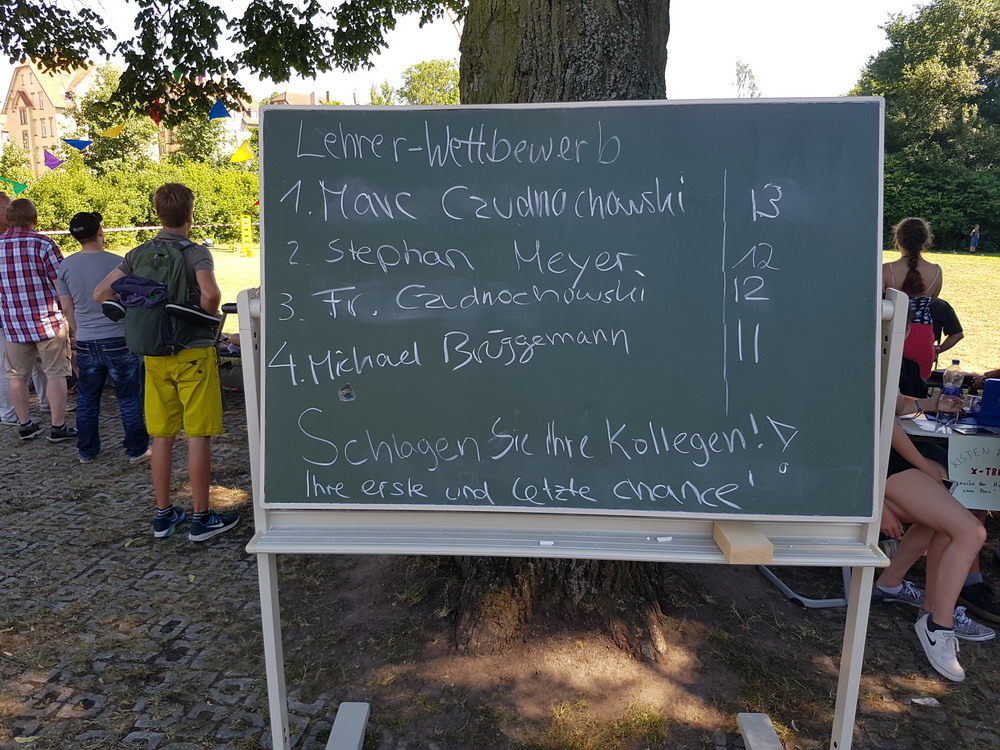 Lehrer-Wettbewerb
1. Marc Czudnochowski 13
2. Stephan Meyer 12
3. Fr. Czudnochowski 12
4. Michael Brüggemann 11
Schlagen Sie Ihre Kollegen!!
Ihre erste und letzte chance!
KISTEN
X-TR